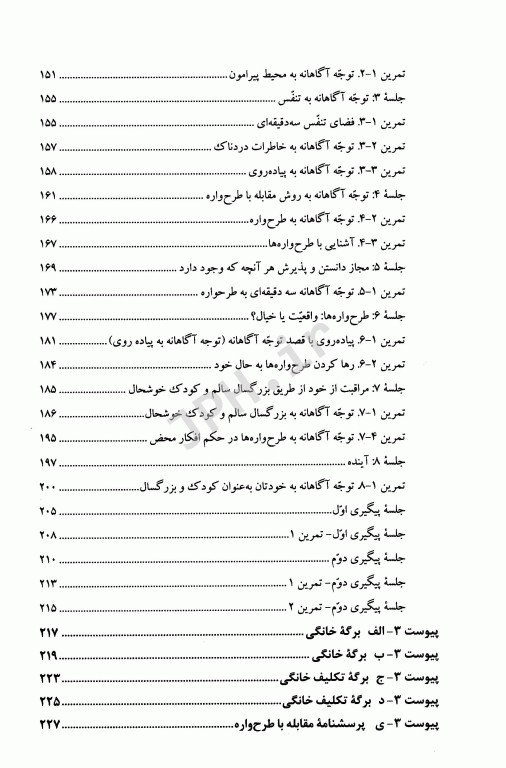 تمرین ۱-۲. توجّه آگاهانه به محیط پیرامون ..... ۱۵۱
جلسهٔ ۳: توجّه آگاهانه به تنفّس ..... ۱۵۵
تمرین ۱-۳. فضای تنفّس سه‌دقیقه‌ای ..... ۱۵۵
تمرین ۲-۳. توجّه آگاهانه به خاطرات دردناک ..... ۱۵۷
تمرین ۳-۳. توجّه آگاهانه به پیاده‌روی ..... ۱۵۸
جلسهٔ ۴: توجّه آگاهانه به روش مقابله با طرح‌واره ..... ۱۶۱
تمرین ۲-۴. توجّه آگاهانه به طرح‌واره ..... ۱۶۶
تمرین ۳-۴. آشنایی با طرح‌واره‌ها ..... ۱۶۷
جلسهٔ ۵: مجاز دانستن و پذیرش هر آنچه که وجود دارد ..... ۱۶۹
تمرین ۱-۵. توجّه آگاهانه سه دقیقه‌ای به طرحواره ..... ۱۷۳
جلسهٔ ۶: طرح‌واره‌ها: واقعیّت یا خیال؟ ..... ۱۷۷
تمرین ۱-۶. پیاده‌روی با قصد توجّه آگاهانه (توجه آگاهانه به پیاده روی) ..... ۱۸۱
تمرین ۲-۶. رها کردن طرح‌واره‌ها به حال خود ..... ۱۸۴
جلسهٔ ۷: مراقبت از خود از طریق بزرگسال سالم و کودک خوشحال ..... ۱۸۵
تمرین ۱-۷. توجّه آگاهانه به بزرگسال سالم و کودک خوشحال ..... ۱۸۶
تمرین ۴-۷. توجّه آگاهانه به طرح‌واره‌ها در حکم افکار محض ..... ۱۹۵
جلسهٔ ۸: آینده ..... ۱۹۷
تمرین ۱-۸. توجّه آگاهانه به خودتان به‌عنوان کودک و بزرگسال ..... ۲۰۰
جلسهٔ پیگیری اوّل ..... ۲۰۵
جلسهٔ پیگیری اوّل- تمرین ۱ ..... ۲۰۸
جلسهٔ پیگیری دوّم ..... ۲۱۰
جلسهٔ پیگیری دوّم- تمرین ۱ ..... ۲۱۳
جلسهٔ پیگیری دوّم- تمرین ۲ ..... ۲۱۵
پیوست ۳- الف برگهٔ خانگی ..... ۲۱۷
پیوست ۳- ب برگهٔ خانگی ..... ۲۱۹
پیوست ۳- ج برگهٔ تکلیف خانگی ..... ۲۲۳
پیوست ۳- د برگهٔ تکلیف خانگی ..... ۲۲۵
پیوست ۳- ی پرسشنامهٔ مقابله با طرح‌واره ..... ۲۲۷
JPH.ir